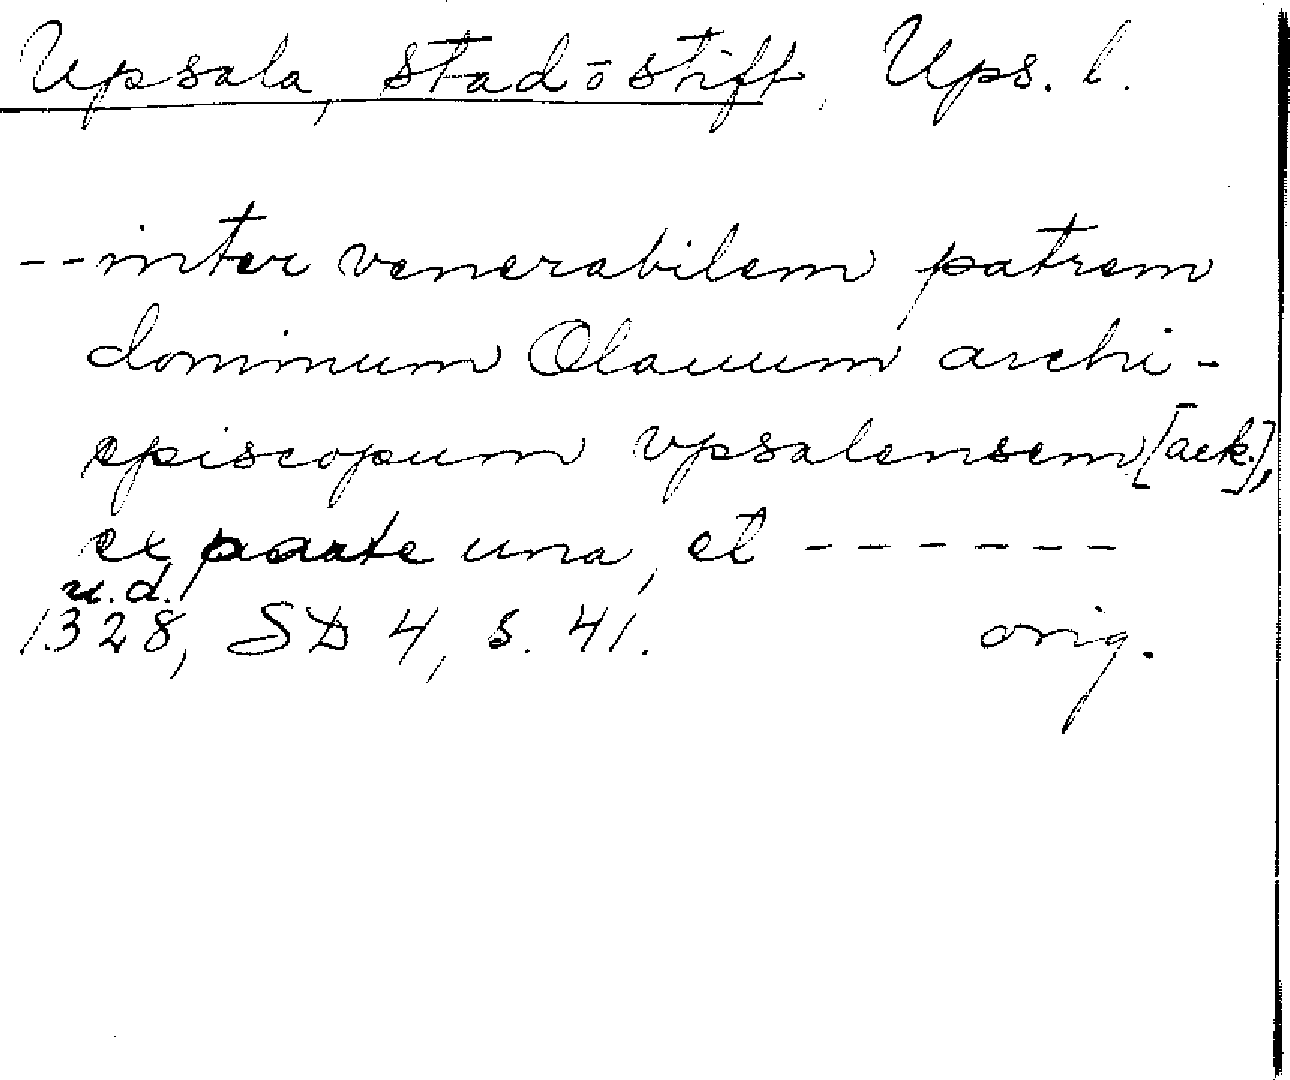 Upsala, stad o stift, Ups. l.
--inter venerabilem patrem
dominum Olauum archi-
episcopum vpsalensem [ack.],
ex parte una, et ------
u.d.
1328, SD 4, s. 41. orig.